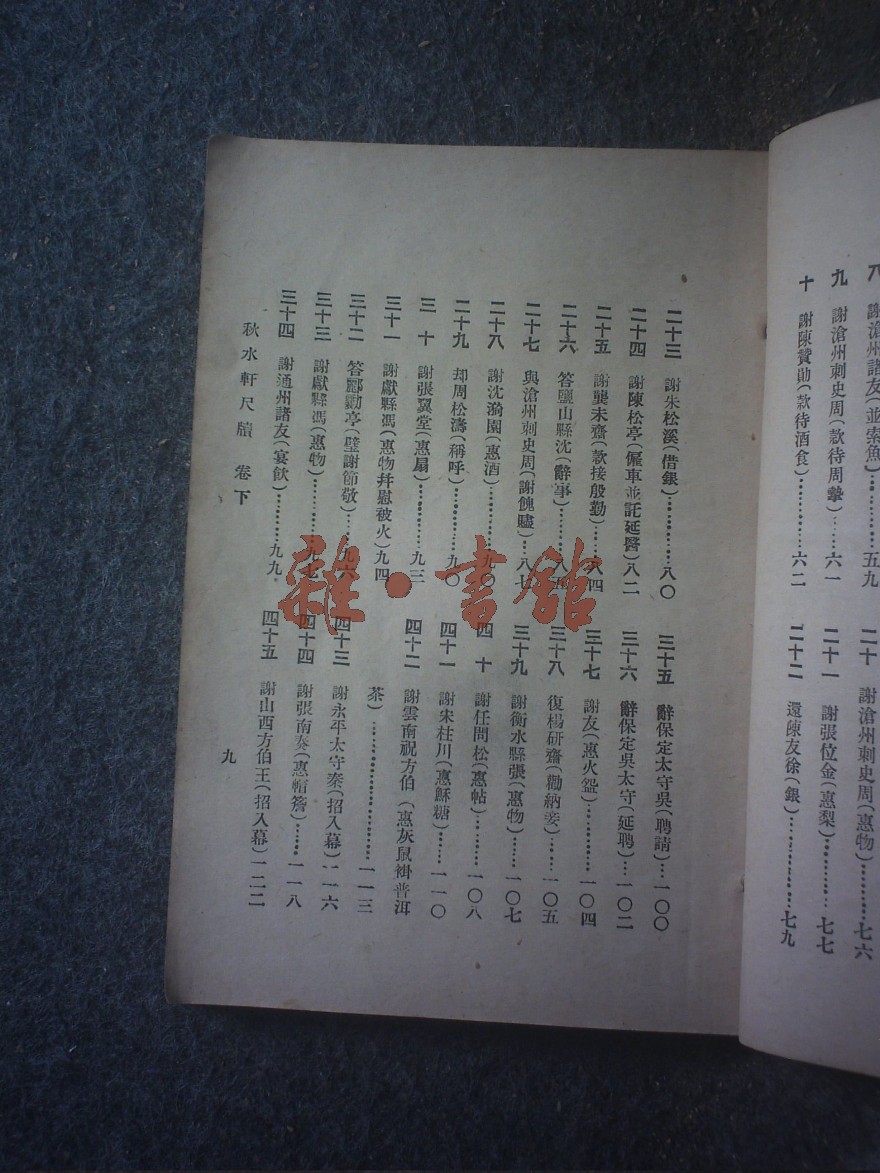 八 謝滄州諸友(並索魚)……五九
九 謝滄州刺史周(款待周摯)……六一
十 謝陳贊勛(款待酒食)……六二
二十 謝滄州刺史周(惠物)……七六
二十一 謝張位金(惠梨)……七七
二十二 還陳友徐(銀)……七九
二十三 謝朱松溪(借銀)……八〇
二十四 謝陳松亭(僱車並託延醫)八二
二十五 謝龔未齋(款接殷勤)……八四
二十六 答鹽山縣沈(辭事)……八五
二十七 與滄州刺史周(謝餽贐)…八七
二十八 謝沈漪園(惠酒)……九〇
二十九 却周松濤(稱呼)……九〇
三十 謝張翼堂(惠扇)……九三
三十一 謝獻縣馮(惠物幷慰被火)九四
三十二 答酈勷亭(璧謝節敬)……九六
三十三 謝獻縣馮(惠物)……九七
三十四 謝通州諸友(宴飲)……九九
三十五 辭保定太守吳(聘請)…一〇〇
三十六 辭保定吳太守(延聘)…一〇二
三十七 謝友(惠火盌)……一〇四
三十八 復楊研齋(勸納妾)……一〇五
三十九 謝衡水縣張(惠物)……一〇七
四十 謝任問松(惠帖)……一〇八
四十一 謝宋桂川(惠酥糖)……一一〇
四十二 謝雲南祝方伯(惠灰鼠褂普洱
茶)……一一三
四十三 謝永平太守秦(招入幕)一一六
四十四 謝張南奏(惠帽簷)……一一八
四十五 謝山西方伯王(招入幕)一二二
秋水軒尺牘 卷下
九
雜·書館